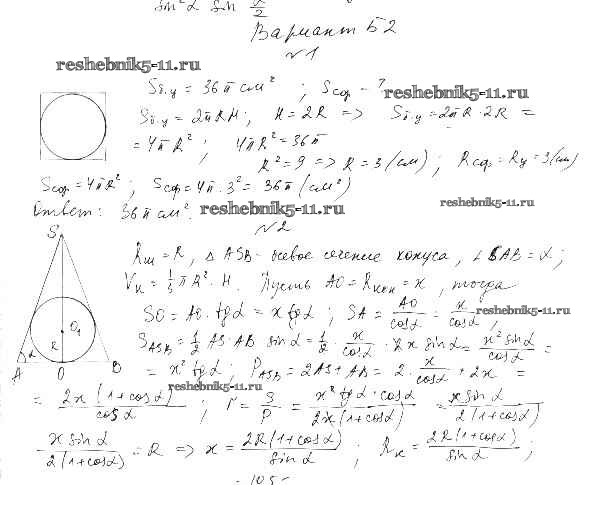 sin²α sin α/2
Вариант Б2
№1
reshebnik5-11.ru
Sб.у = 36π см² ; Sсф - ?
reshebnik5-11.ru
Sб.у = 2πRH ; H = 2R => Sб.у = 2πR · 2R =
= 4πR² ; 4πR² = 36π
R² = 9 => R = 3 (см) ; Rсф = Rу = 3 (см)
Sсф = 4πR² ; Sсф = 4π · 3² = 36π (см²)
Ответ: 36π см².
reshebnik5-11.ru
reshebnik5-11.ru
№2
S
Rш = R, △ ASB - осевое сечение конуса, ∠SAB = α ;
Vк = 1/3 πR² · H. Пусть AO = Rкон = x , тогда
SO = AO · tgα = x tgα ; SA = AO/cosα = x/cosα ;
reshebnik5-11.ru
SASB = 1/2 AS · AB sinα = 1/2 · x/cosα · 2x sinα = x² sinα/cosα =
O₁
R
α
A O B
= x² tgα ; PASB = 2AS + AB = 2 · x/cosα + 2x =
reshebnik5-11.ru
= 2x(1+cosα)/cosα ; r = S/P = x² tgα · cosα/2x(1+cosα) = x sinα/2(1+cosα)
x sinα/2(1+cosα) = R => x = 2R(1+cosα)/sinα ; Rк = 2R(1+cosα)/sinα ;
105